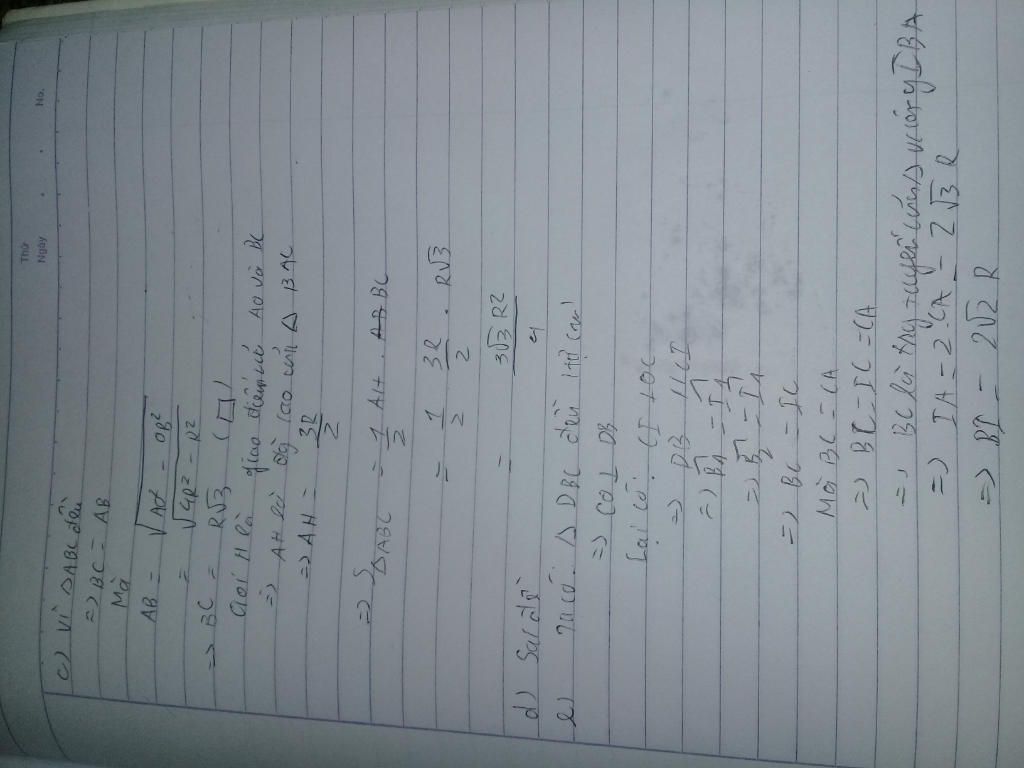 Thứ
Ngày . . No.
c) Vì △ABC đều
=> BC = AB
Mà
AB = √AO² - OB²
= √4R² - R²
=> BC = R√3 (□)
Gọi H là giao điểm của AO và BC
=> AH là đg cao của △ BAC
=> AH = 3R/2
=> S△ABC = 1/2 AH . BC
= 1/2 . 3R/2 . R√3
= 3√3 R²/4
d) Sai đề
e) Ta có: △ DBC đều
=> CO ⊥ DB
Lại có: CI ⊥ OC
=> DB // CI
=> B1 = I1
=> BC = IC
Mà BC = CA
=> BC = IC = CA
=> BC là trg tuyến của △ vuông IBA
=> IA = 2.CA = 2√3 R
=> BI = 2√2 R